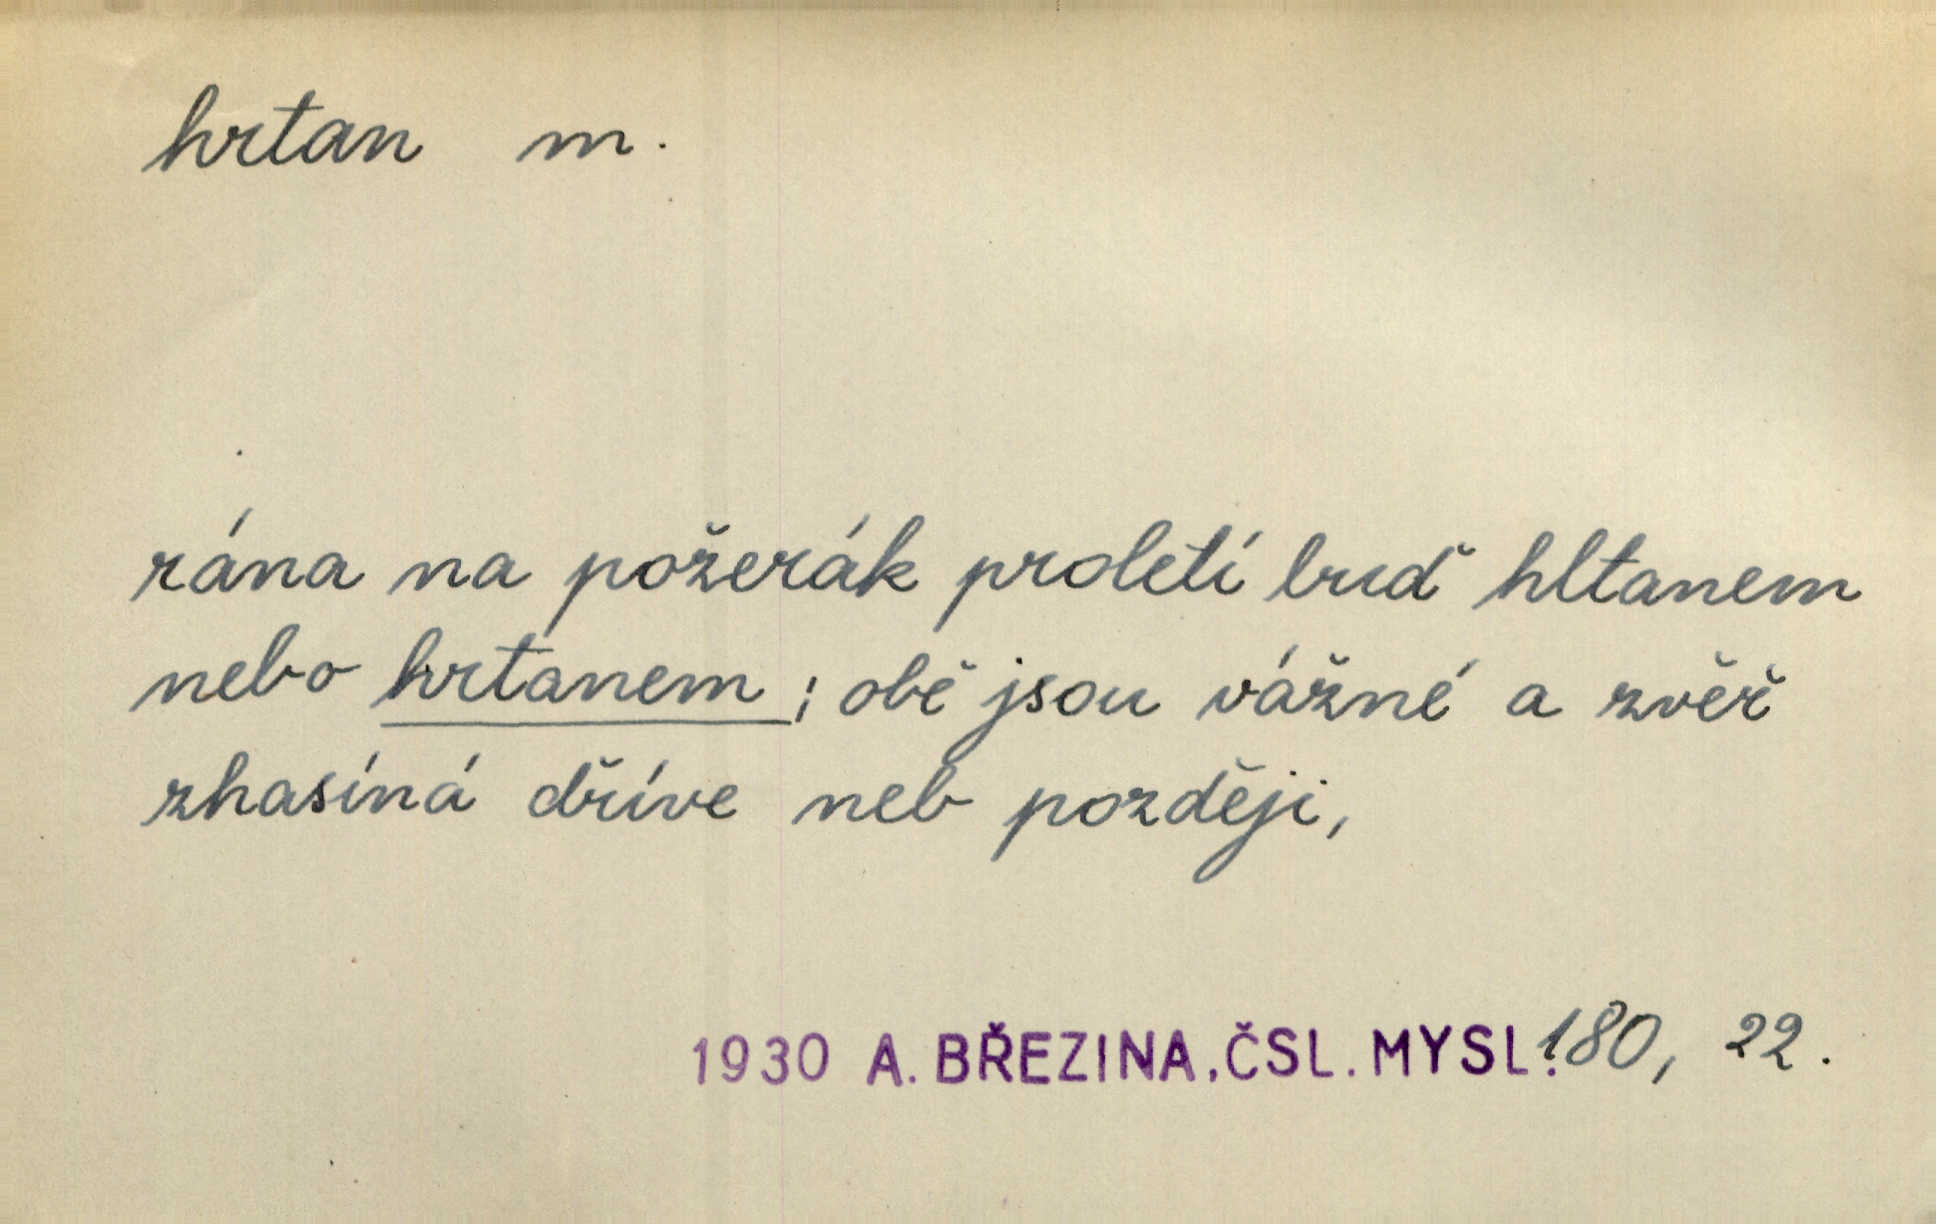 hrtan m.
rána na požerák proletí buď hltanem
nebo hrtanem; obě jsou vážné a zvěř
zhasíná dříve neb později,
1930 A. BŘEZINA, ČSL. MYSL. 180, 22.